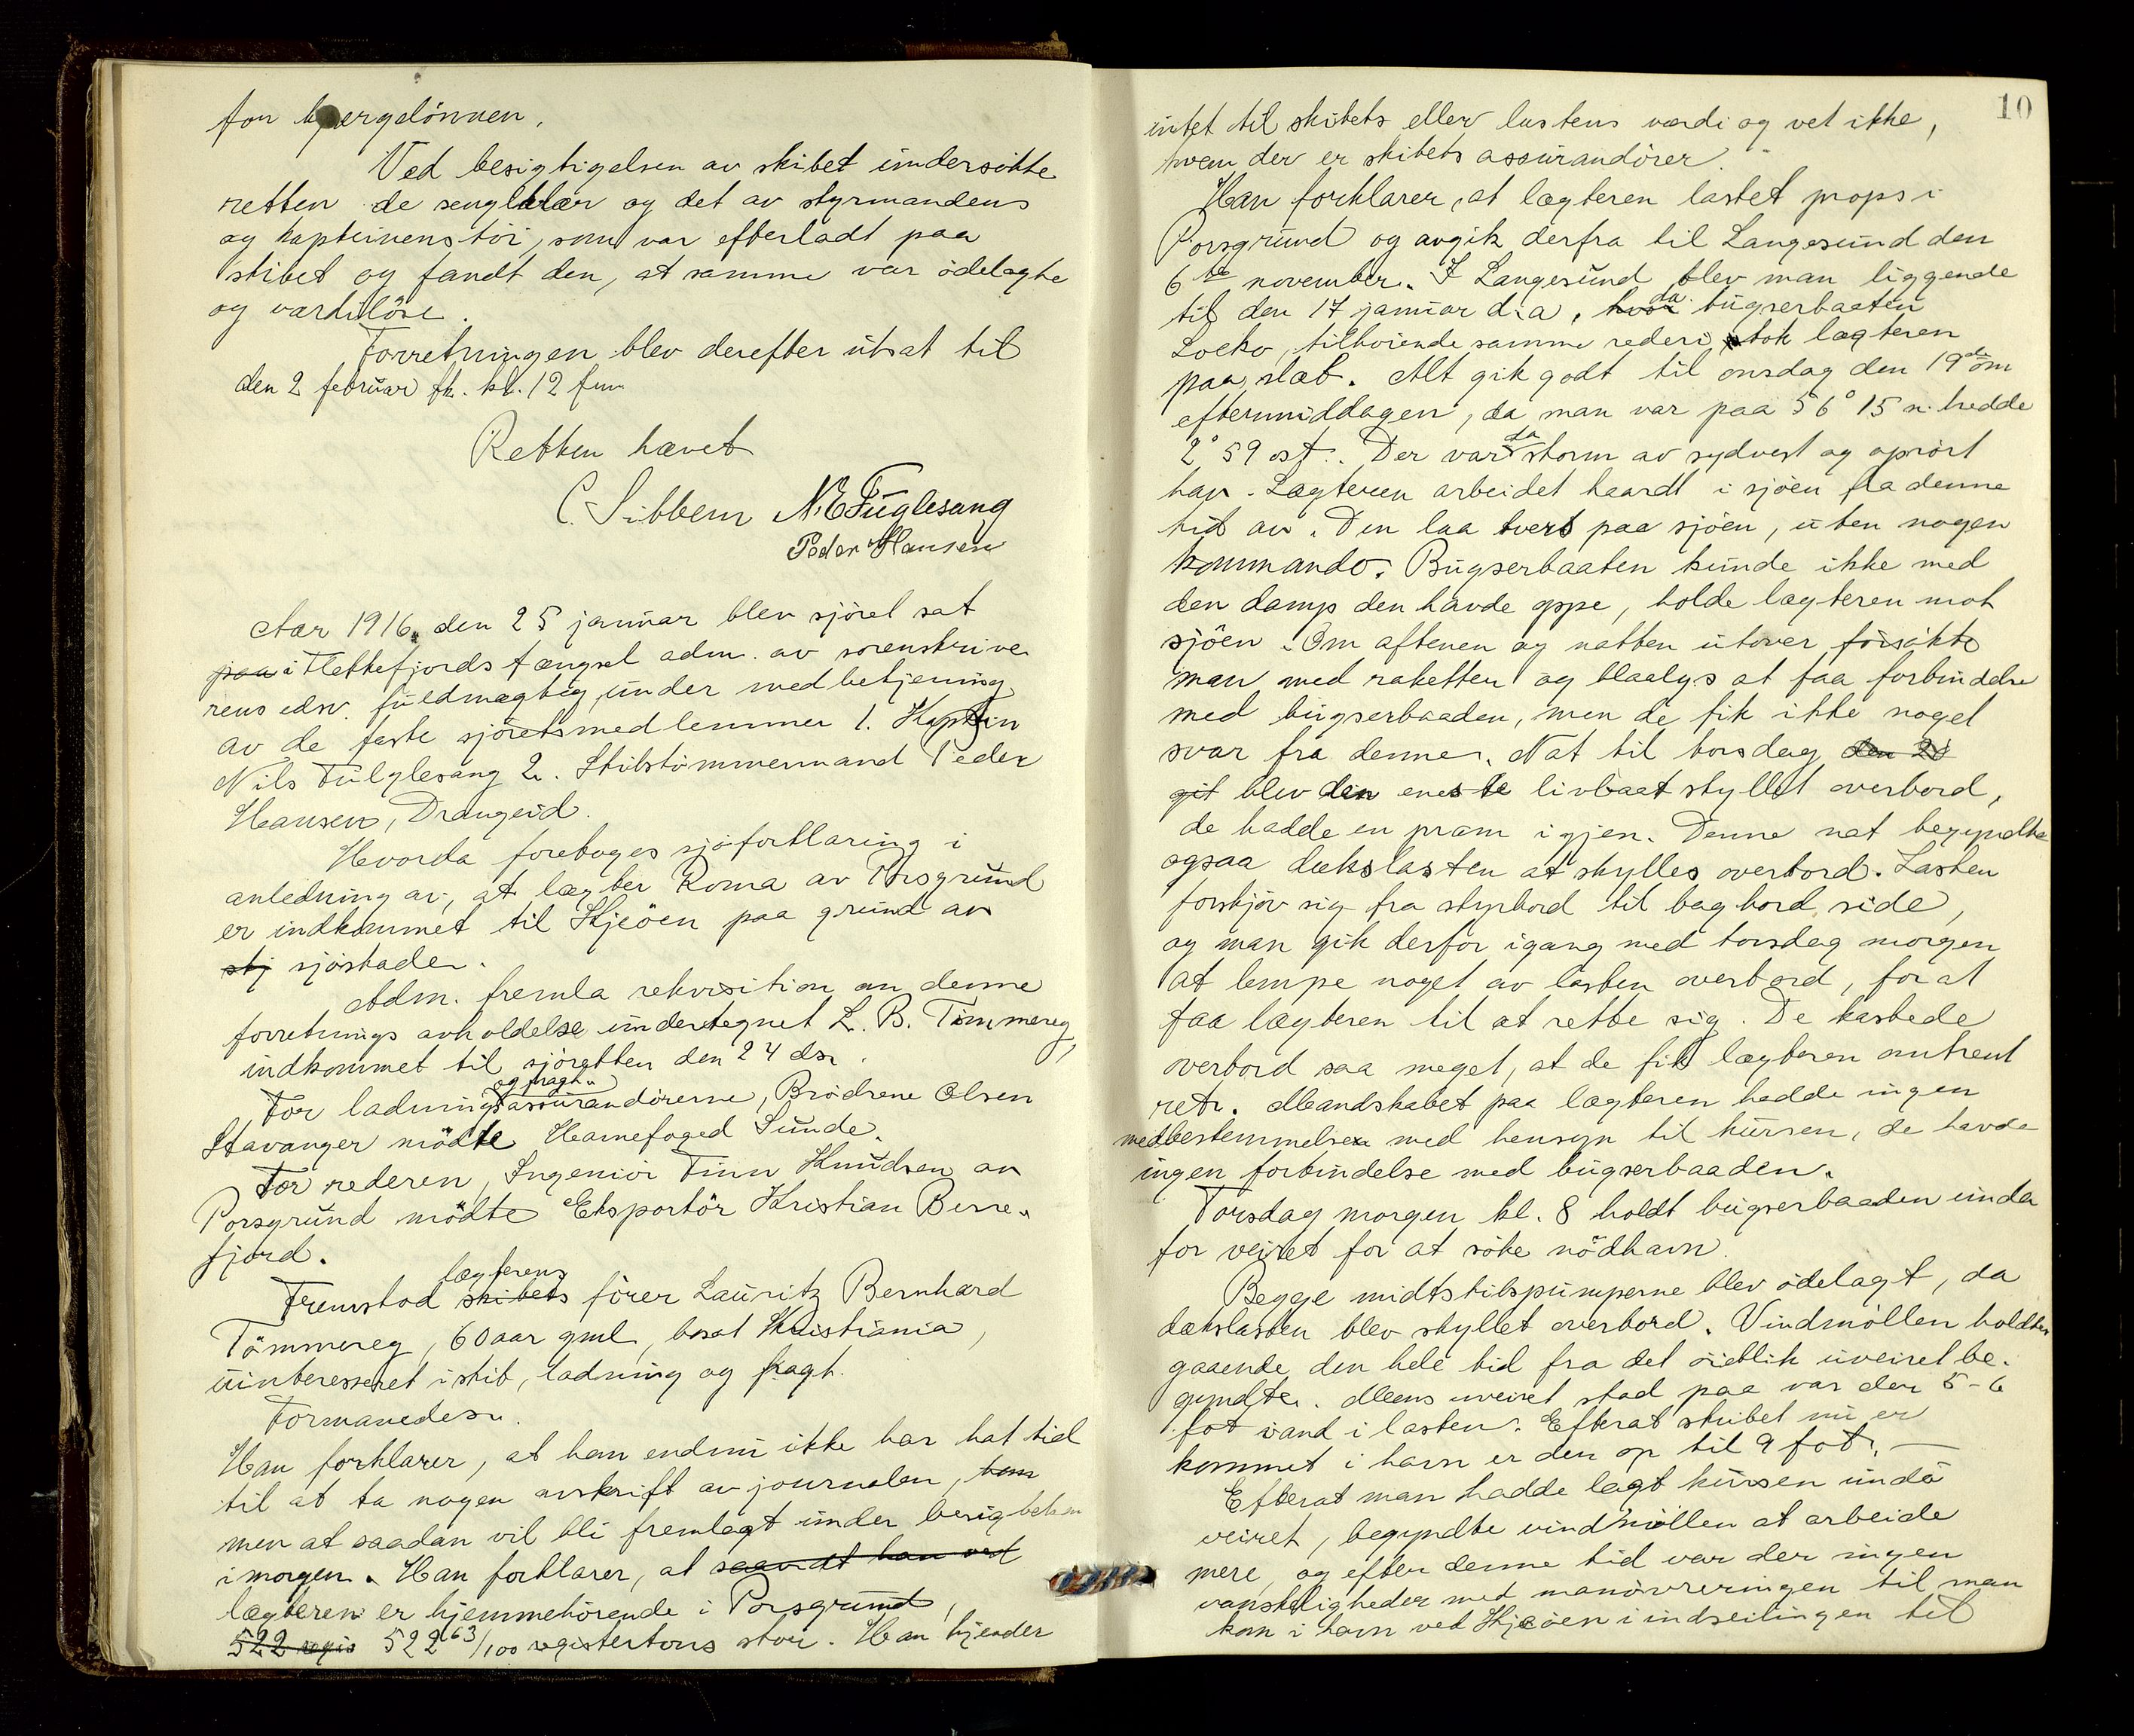 for bjergelönnen.
Ved besigtigelsen av skibet undersökte
retten de sengklær og det av styrmandens
og kapteinens töi, som var efterladt paa
skibet og fandt den, at samme var ödelagte
og værdilöse.
Forretningen blev derefter utsat til
den 2 februar fk. kl. 12 fm
Retten hævet
C. Sibbern N. E. Fuglesang
Peder Hansen
Aar 1916, den 25 januar blev sjöret sat
paa i Flekkefjords fængsel adm. av sorenskrive
rens edsv. fuldmægtig under medbetjening
av de faste sjöretsmedlemmer 1. Kaptein
Nils Fulglesang 2. Skibstömmermand Peder
Hansen, Drangeid.
Hvorda foretoges sjöforklaring i
anledning av, at lægter Roma av Porsgrund
er indkommet til Skjeöen paa grund av
skj sjöskade.
Adm. fremla rekvisition om denne
forretnings avholdelse undertegnet L. B. Tömmereg,
indkommet til sjöretten den 24 ds.
og fragt-
For ladningsassurandörerne, Brödrene Olsen
Stavanger mödte Havnefoged Sunde.
For rederen, Ingeniör Finn Knudsen av
Porsgrund mödte Eksportör Kristian Berre-
fjord.
lægterens
Fremstod skibets förer Lauritz Bernhard
Tömmereg, 60 aar gml, bosat Kristiania,
uinteresseret i skib, ladning og fragt.
Formanedes.
Han forklarer, at han endnu ikke har hat tid
til at ta nogen avskrift av journalen, han
men at saadan vil bli fremlagt under besigtelsen
imorgen. Han forklarer, at saavidt han vet
lægteren er hjemmehörende i Porsgrund,
522 regis 522 63/100 registertons stor. Han kjender
10
intet til skibets eller lastens værdi og vet ikke,
hvem der er skibets assurandörer.
Han forklarer, at lægteren lastet props i
Porsgrund og avgik derfra til Langesund den
6te november. I Langesund blev man liggende
da
til den 17 januar d.a, hvor bugserbaaten
Locko, tilhörende samme rederi, tok lægteren
paa slæb. Alt gik godt til onsdag den 19de om
eftermiddagen, da man var paa 56° 15 n. bredde
da
2° 59 ost. Der var storm av sydvest og oprört
hav. Lægteren arbeidet haardt i sjöen fra denne
tid av. Den laa tvers paa sjöen, uten nogen
kommando. Bugserbaaten kunde ikke med
den damp den havde oppe, holde lægteren mot
sjöen. Om aftenen og natten utover forsökte
man med raketter og blaalys at faa forbindelse
med bugserbaaden, men de fik ikke noget
svar fra denne. Nat til torsdag den 20
git blev den eneste livbaat skyllet overbord,
de hadde en pram igjen. Denne nat begyndte
ogsaa dækslasten at skylles overbord. Lasten
forskjöv sig fra styrbord til bagbord side,
og man gik derfor igang med torsdag morgen
at lempe noget av lasten overbord, for at
faa lægteren til at rette sig. De kastede
overbord saa meget, at de fik lægteren omtrent
ret. Mandskabet paa lægteren hadde ingen
medbestemmelse med hensyn til kursen, de havde
ingen forbindelse med bugserbaaden.
Torsdag morgen kl. 8 holdt bugserbaaden unda
for veiret for at söke nödhavn.
Begge midtskibspumperne blev ödelagt, da
dækslasten blev skyllet overbord. Vindmöllen holdtes
gaaende den hele tid fra det öieblik uveiret be-
gyndte. Mens uveiret stod paa var der 5-6
fot vand i lasten. Efterat skibet nu er
kommet i havn er den op til 9 fot. —
Efterat man hadde lagt kursen unda
veiret, begyndte vindmöllen at arbeide
mere, og efter denne tid var der ingen
vanskeligheder med manövreringen til man
kom i havn ved Skjeöen i indseilingen til